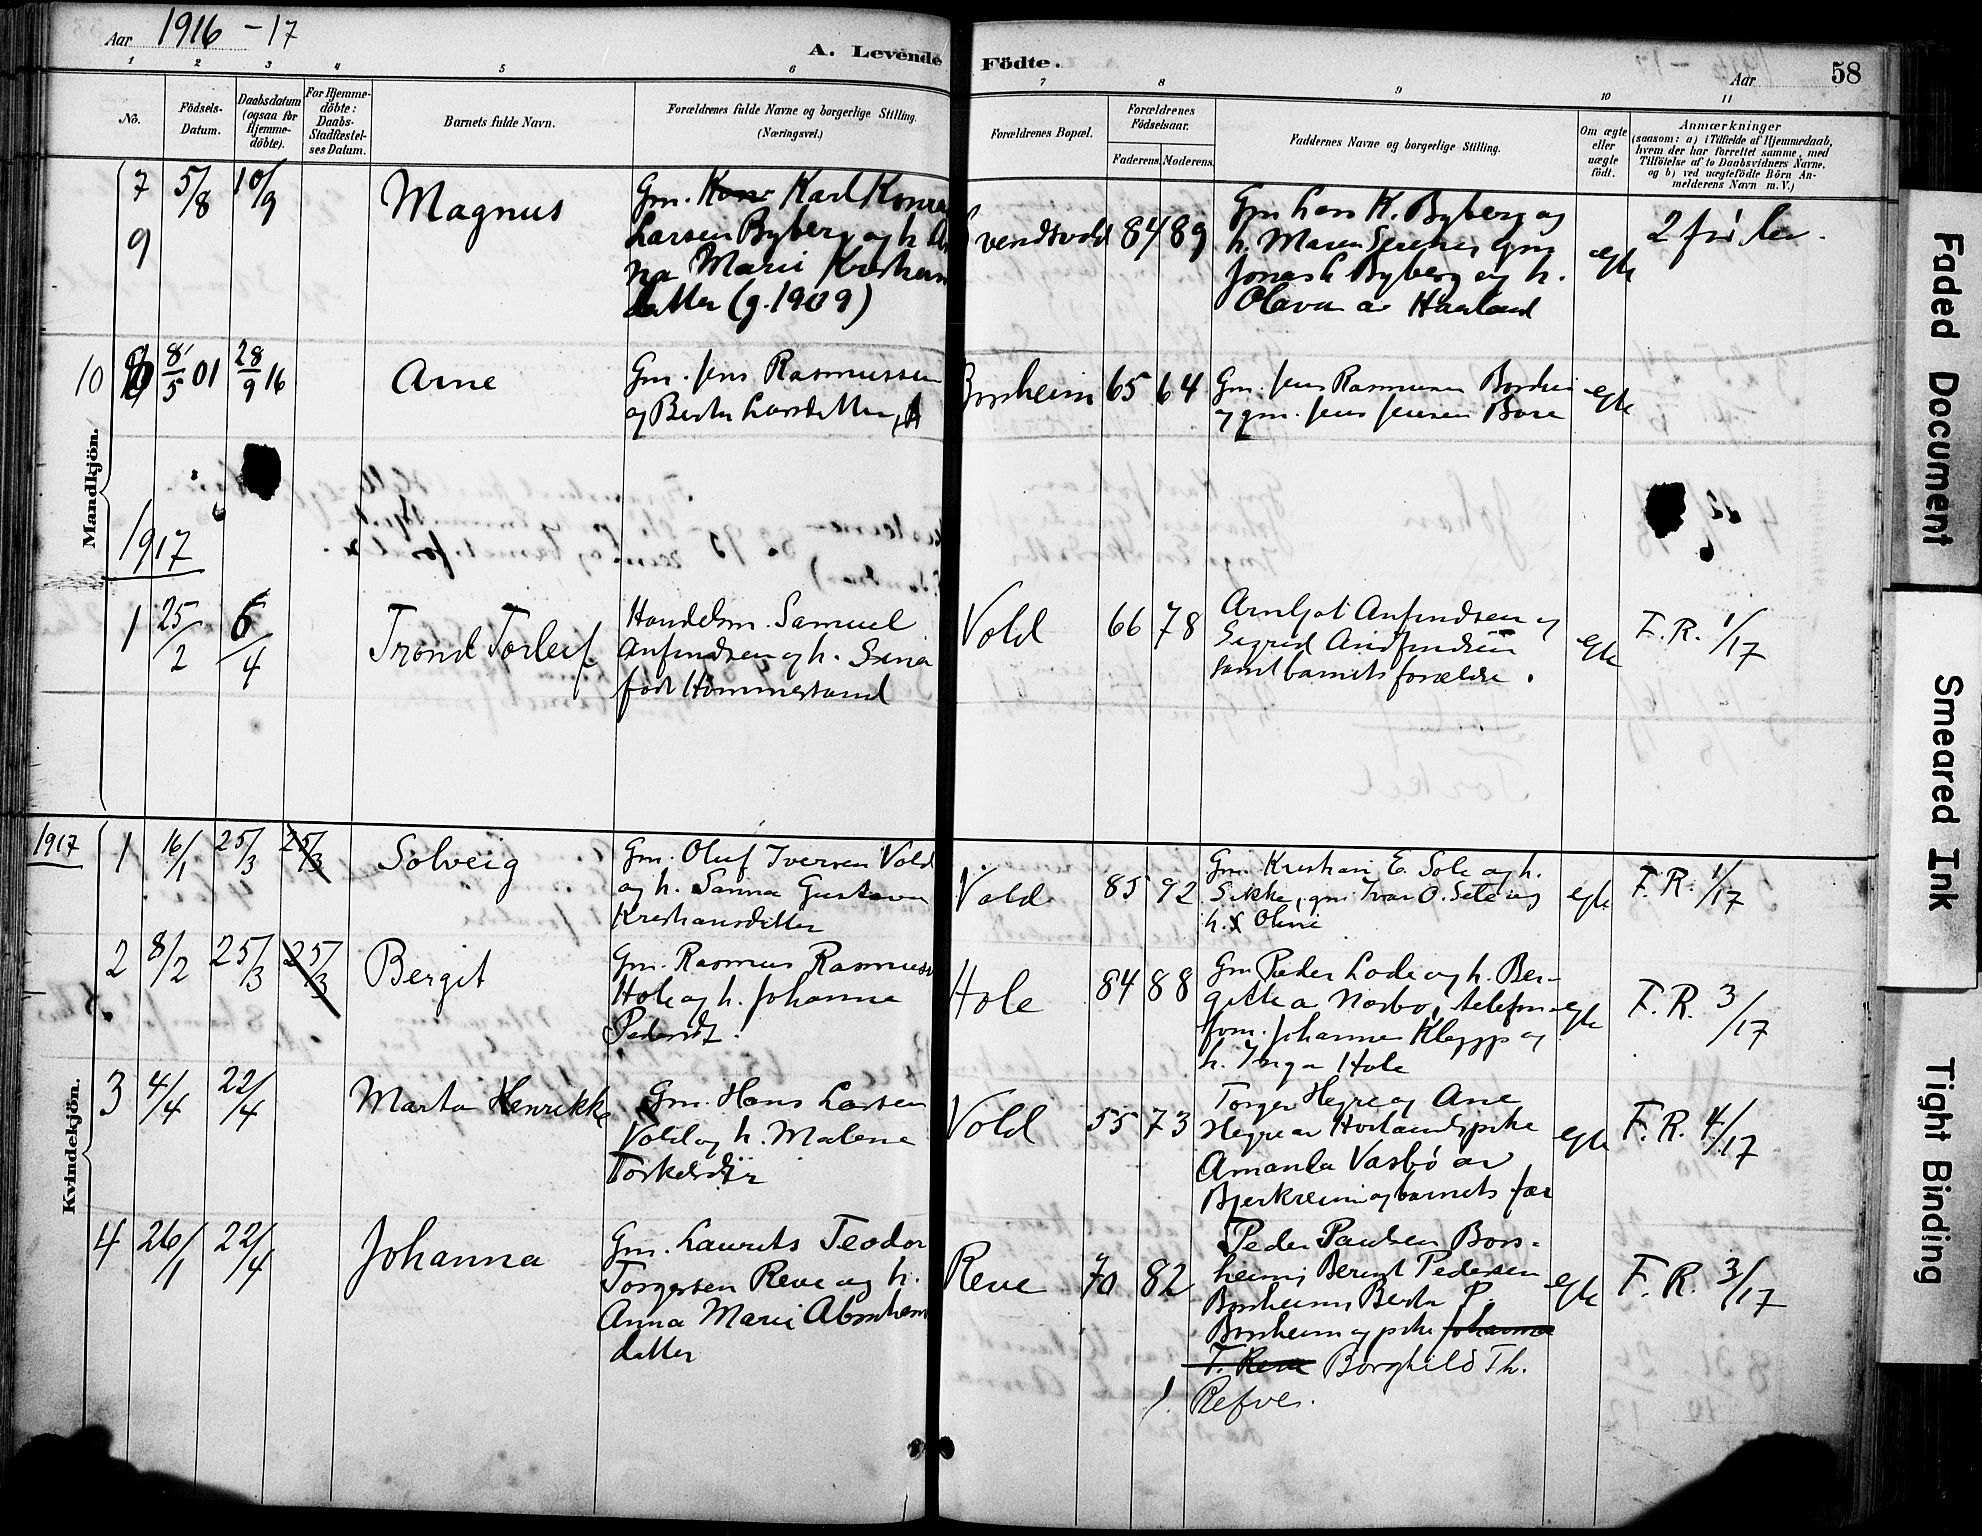 Aar 1916-17
A. Levende Födte.
Aar
58
1 2 3 4 5 6 7 8 9 10 11
No.
Födsels-
Datum.
Daabsdatum
(ogsaa for
Hjemme-
döbte).
For Hjemme-
döbte:
Daabs-
Stadfæstel-
ses Datum.
Barnets fulde Navn.
Forældrenes fulde Navne og borgerlige Stilling.
(Næringsvei.)
Forældrenes Bopæl.
Forældrenes
Födselsaar.
Faderens. Moderens.
Faddernes Navne og borgerlige Stilling.
Om ægte
eller
uægte
födt.
Anmærkninger
(saasom: a) i Tilfælde af Hjemmedaab,
hvem der har forrettet samme, med
Tilföielse af to Daabsvidners Navne,
og b) ved uægtefödte Börn An-
melderens Navn m. V.)
Mandkjön.
7
9
5/8
10/9
Magnus
Gm. Karl Konra
Larsen Byberg og h. An
na Marie Kristians
datter (g. 1909)
vendsvold
84 89
Gm Lars K. Byberg og
h. Maren Serene, Gm
Jonas L Byberg og h.
Olava av Haaland
egte
10
8/5 01
28/9 16
Arne
Gm. Jens Rasmussen
og Berta Larsdatter
Borsheim
65 64
Gm. Jens Rasmussen
og gm. Jens Jensen Bore
egte
1917
1
25/2
6/4
Trond Torleif
Handelsm. Samuel
Anfindsen og h. Sina
født Hommersand
Vold
66 78
Arnljot Anfindsen og
Sigrid Anfindsen
samt barnets forældre.
egte
F. R. 1/17
Kvindekjön.
1917
1
16/1
25/3
25/3
Solveig
Gm. Oluf Iversen Vold
og h. Sanna Gustava
Kristiansdatter
Vold
85 92
Gm. Kristian E. Sole og h.
Sikke, gm Ivar O. Sele og
h. Oline
egte
F. R. 1/17
2
8/2
25/3
25/3
Bergit
Gm. Rasmus Rasmuss
Hole og h. Johanna
Pedersdt.
Hole
84 88
Gm Peder Lode og h. Ber-
gitte av Norbø, telefon-
fom. Johannes Klepp og
h. Inga Hole
egte
F. R. 3/17
3
4/4
22/4
Marta Henrikke
Gm. Hans Larsen
Vold og h. Malene
Torkelsdtr
Vold
55 73
Torger Hegre og Ane
Hegre av Hetland, pike
Amanda Vasbø av
Bjerkreim og barnets far
egte
F. R. 4/17
4
26/1
22/4
Johanna
Gm. Laurits Teodor
Torgersen Reve og h.
Anna Marie Abraham
datter
Reve
70 82
Peder Paulsen Bors-
heim, Berent Pedersen
Borsheim Berta P.
Borsheim og pike Johanna
T. Reve Borghild Th.
Refve.
egte
F. R. 3/17
Faded Document
Smeared Ink
Tight Binding